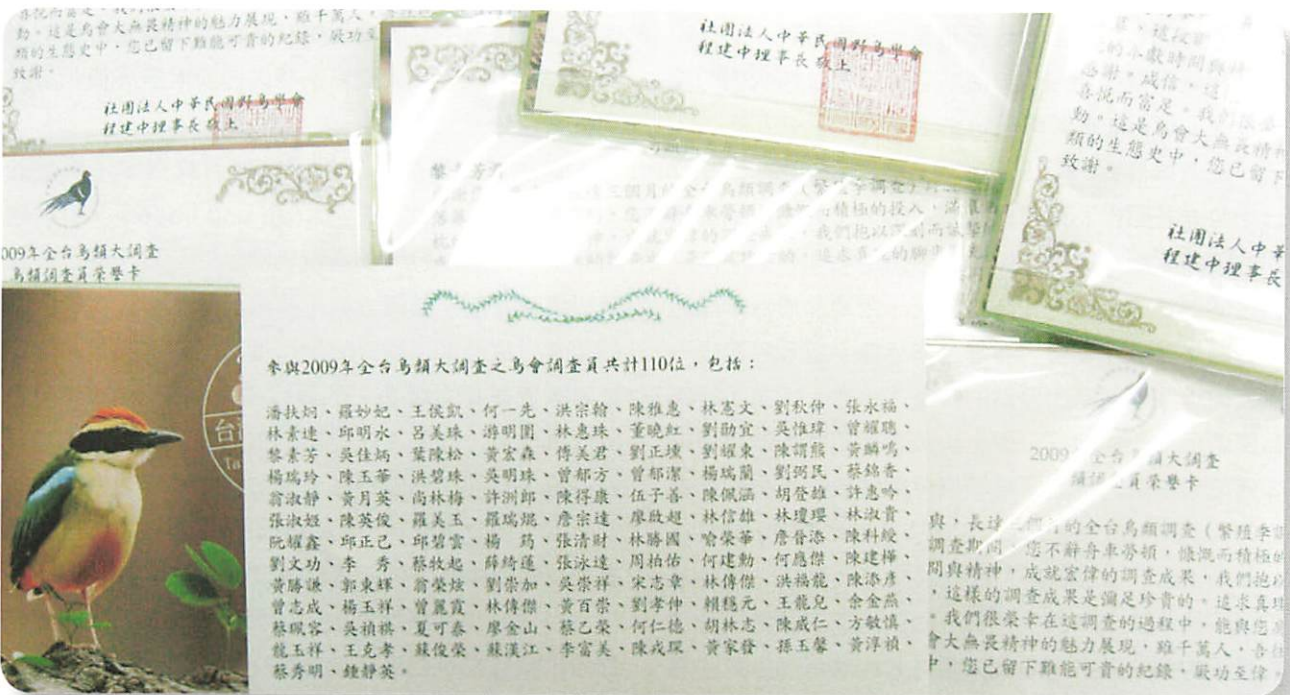 動。這是鳥會大無畏精神的魅力展現,雖千萬人,
類的生態史中,您已留下難能可貴的紀錄,厥功至
致謝。
社團法人中華民國野鳥學會
程建中理事長敬上
社團法人中華民國野鳥學會
程建中理事長敬上
感謝。誠信,這
喜悅而富足。我們很榮
動。這是鳥會大無畏精神
類的生態史中,您已留下
致謝。
社團法人中華
程建中理事長
009年全台鳥類大調查
鳥類調查員榮譽卡
參與2009年全台鳥類大調查之鳥會調查員共計110位,包括:
潘扶炯、羅妙妃、王侯凱、何一先、洪宗翰、陳雅惠、林憲文、劉秋仲、張永福、
林素連、邱明水、呂美珠、游明園、林惠珠、董曉紅、劉勛宜、吳惟瑋、曾耀聰、
黎素芳、吳佳炳、葉陳松、黃宏森、傅美君、劉正壎、劉耀東、陳謂熊、黃麟鳴、
楊瑞玲、陳玉華、洪碧珠、吳明珠、曾郁方、曾郁潔、楊瑞蘭、劉弼民、蔡錦香、
翁淑靜、黃月英、尚林梅、許洲郎、陳得康、伍子善、陳佩涵、胡登雄、許惠吟、
張淑姬、陳英俊、羅美玉、羅瑞焜、詹宗達、廖啟超、林信雄、林瓊瓔、林淑貴、
阮耀鑫、邱正己、邱碧雲、楊 筠、張清財、林勝國、喻榮華、詹晉添、陳科綬、
劉文功、李 秀、蔡牧起、薛綺蓮、張泳達、周柏佑、何建勳、何應傑、陳建樺、
黃勝謙、郭東輝、翁榮炫、劉崇加、吳崇祥、宋志章、林傳傑、洪福龍、陳添彥、
曾志成、楊玉祥、曾麗霞、林傳傑、黃百崇、劉孝伸、賴穩元、王龍兒、余金燕、
蔡珮容、吳禎祺、夏可泰、廖金山、蔡乙榮、何仁德、胡林志、陳威仁、方敏慎、
龍玉祥、王克孝、蘇俊榮、蘇漢江、李富美、陳戎琛、黃家發、孫玉馨、黃淳禎、
蔡秀明、鍾靜英。
2009年全台鳥類大調查
類調查員榮譽卡
與,長達三個月的全台鳥類調查(繁殖季調
調查期間,您不辭舟車勞頓,慷慨而積極的
間與精神,成就宏偉的調查成果,我們抱以
,這樣的調查成果是彌足珍貴的。追求真理
。我們很榮幸在這調查的過程中,能與您
會大無畏精神的魅力展現,雖千萬人,吾往
中,您已留下難能可貴的紀錄,厥功至偉